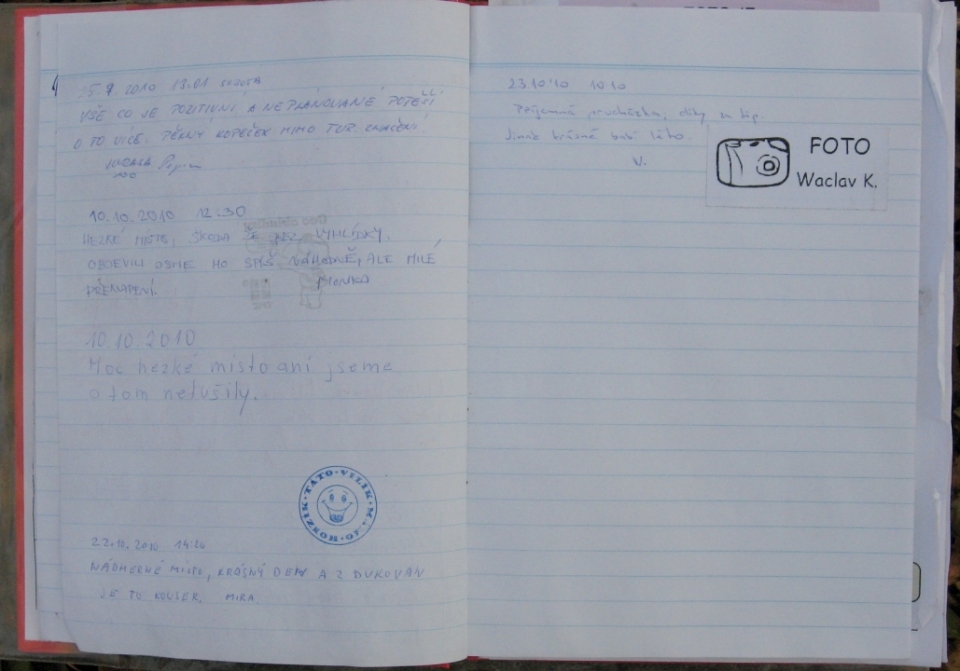 5.9 2010 18.01 sobota
VŠE CO JE POZITIVNÍ A NEPLÁNOVANÉ POTĚŠÍ
O TO VÍCE. PĚKNÝ KOPEČEK MIMO TUR. ZNAČENÍ!
10.10.2010 12:30
HEZKÉ MÍSTO, ŠKODA ŽE BEZ VYHLÍDKY.
OBJEVILI JSME HO SPÍŠ NÁHODNĚ, ALE MILÉ
PŘEKVAPENÍ.
MONIKA
10.10.2010
Moc hezké místo ani jsme
o tom netušily.
TÁTO·VILIK·M·JO·HONZIK
22.10.2010 14:20
NÁDHERNÉ MÍSTO, KRÁSNÝ DEN A Z DUKOVAN
JE TO KOUSEK. MIRA
23 10'10 1010
Příjemná procházka, díky za tip.
Jinak krásné babí léto.
V.
FOTO
Waclav K.